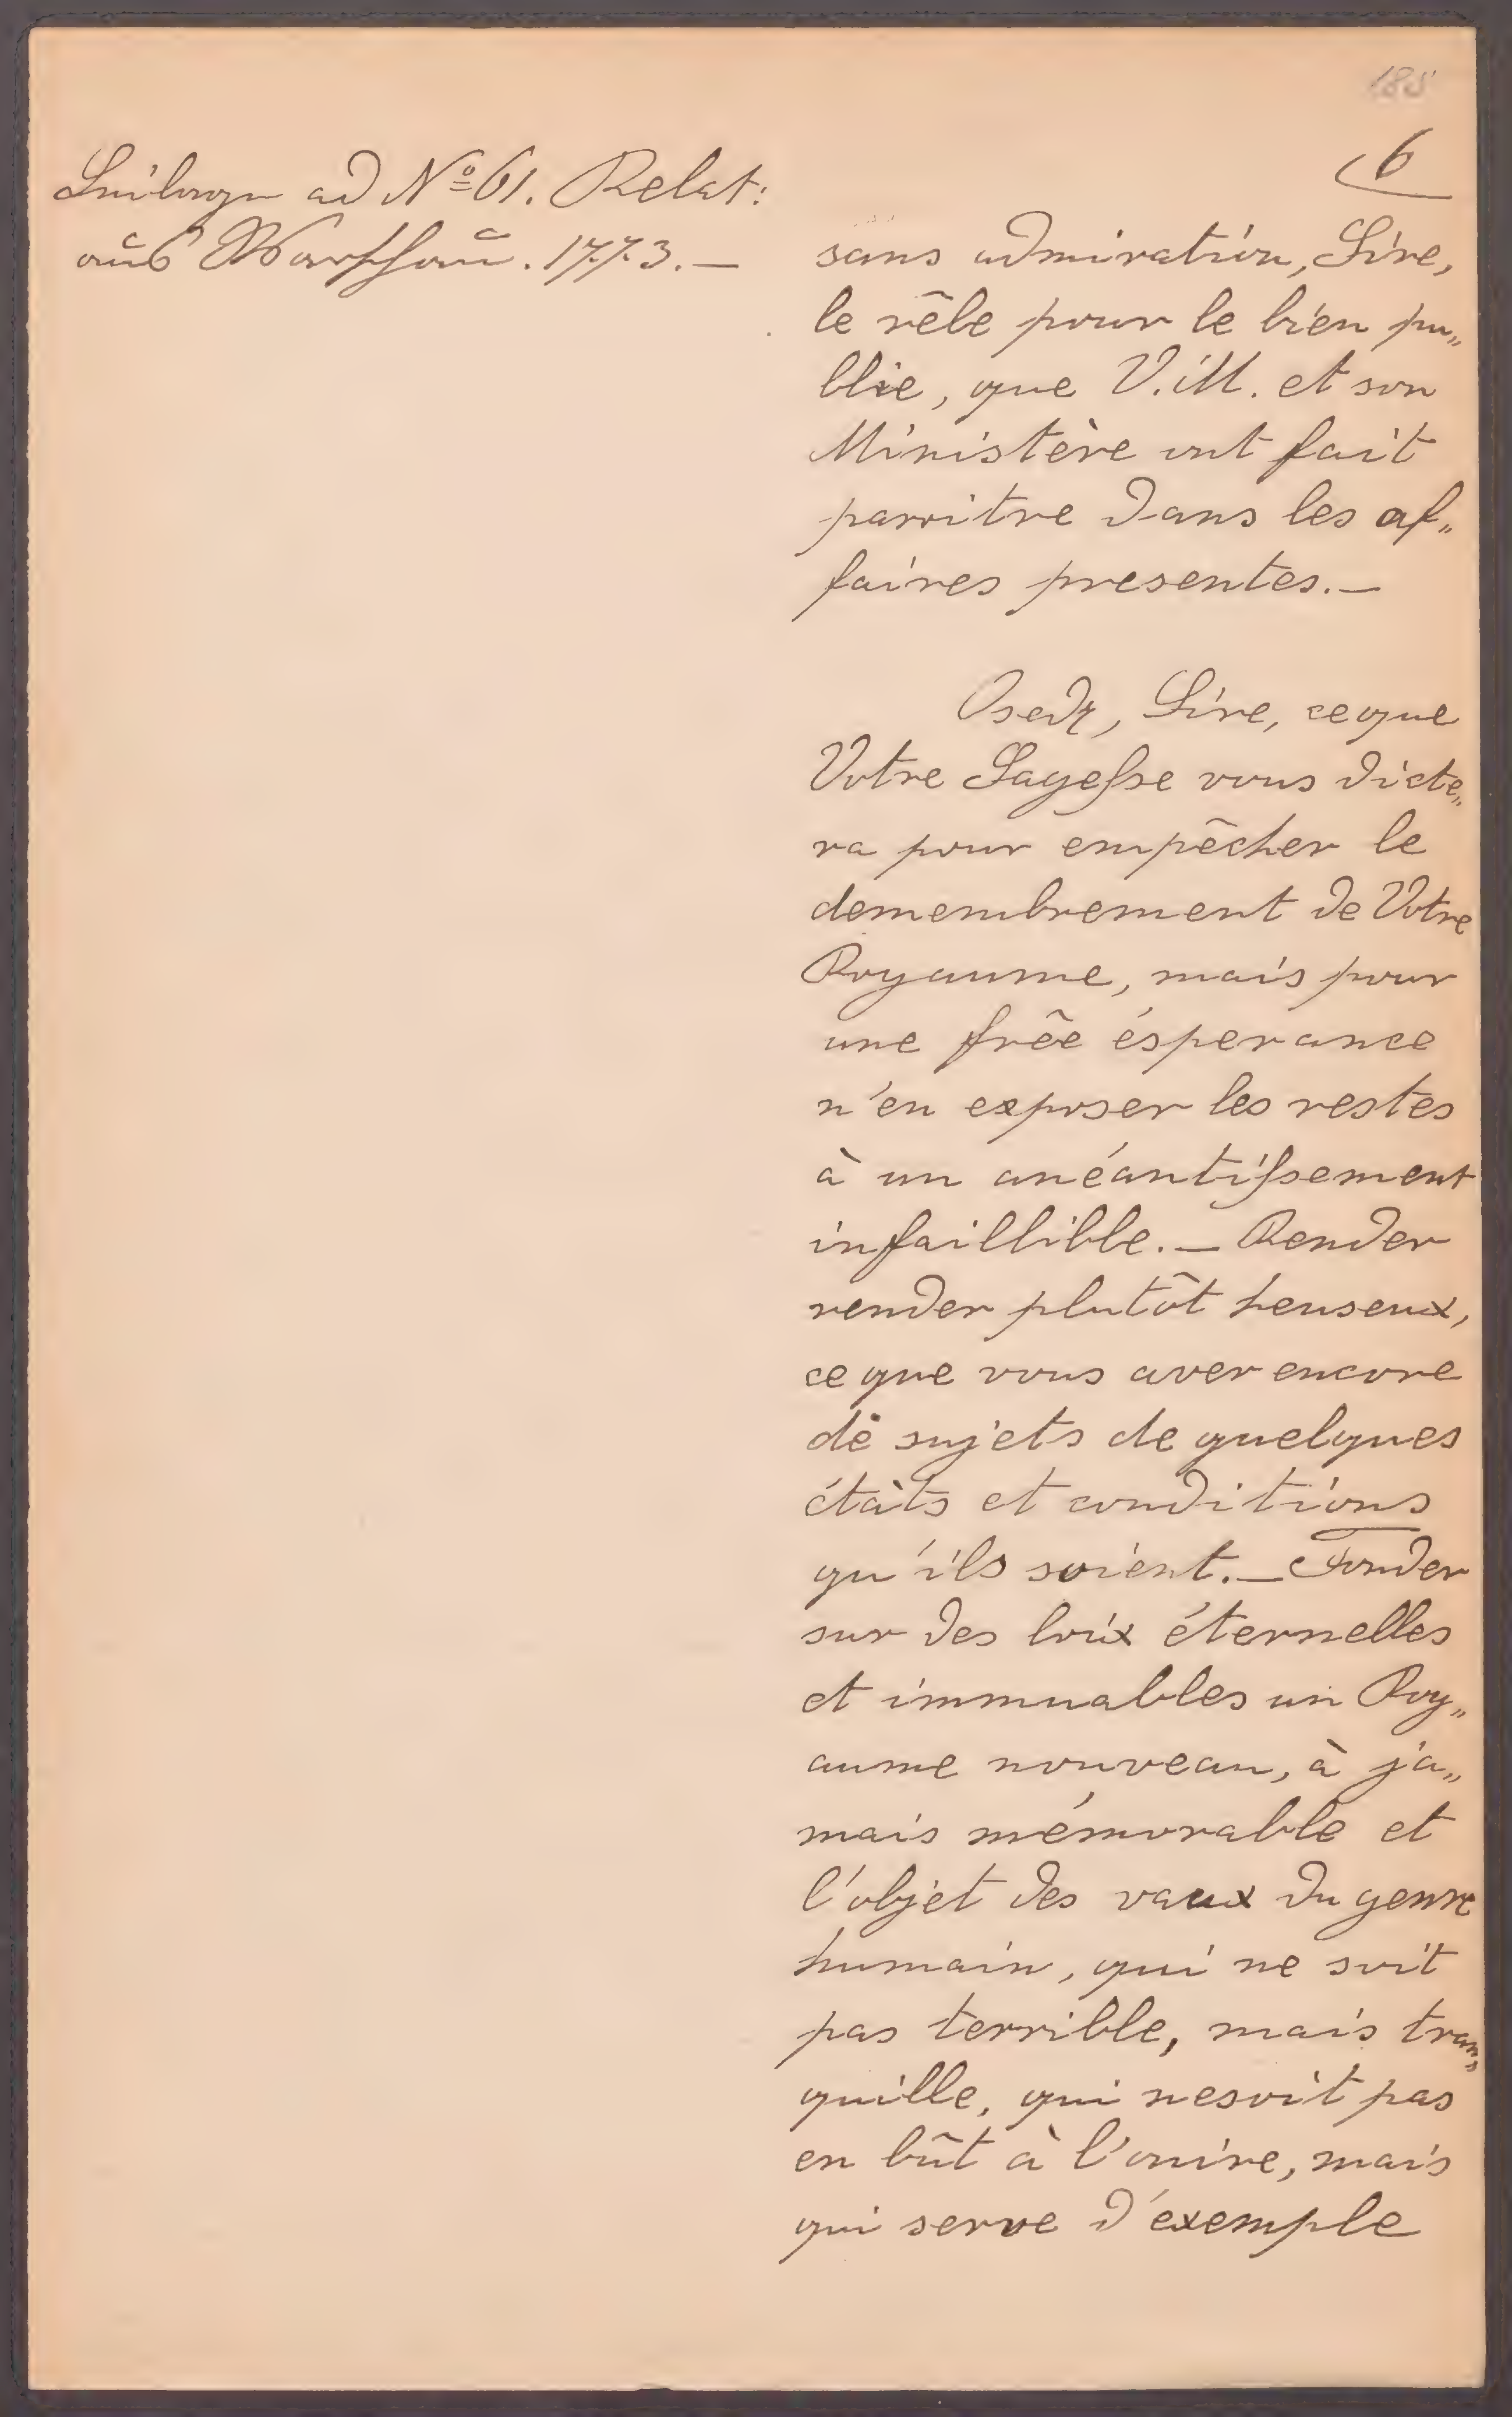 188
6
Beilage ad Nº 61. Relat:
aus Warschau. 1773.—
sans admiration, Sire,
le rêle pour le bien pu„
blie, que V. M. et son
Ministère ont fait
parroitre dans les af„
faires presentes.—
Osedz, Sire, ceque
Votre Sagesse vous dicte„
ra pour empêcher le
demembrement de Votre
Royaume, mais pour
une frêe ésperance
n'en exposer les restes
à un anéantissement
infaillible.— Render
render plutôt heuseux,
ce que vous aver encore
de sujets de quelques
états et conditions
qu'ils soient.— Fonder
sur des loix éternelles
et immuables un Roy„
aume nouveau, à ja„
mais mémorable et
l'objet des vaux du genre
humain, qui ne soit
pas terrible, mais tran„
quille, qui nesoit pas
en bût à l'onire, mais
qui serve d'exemple